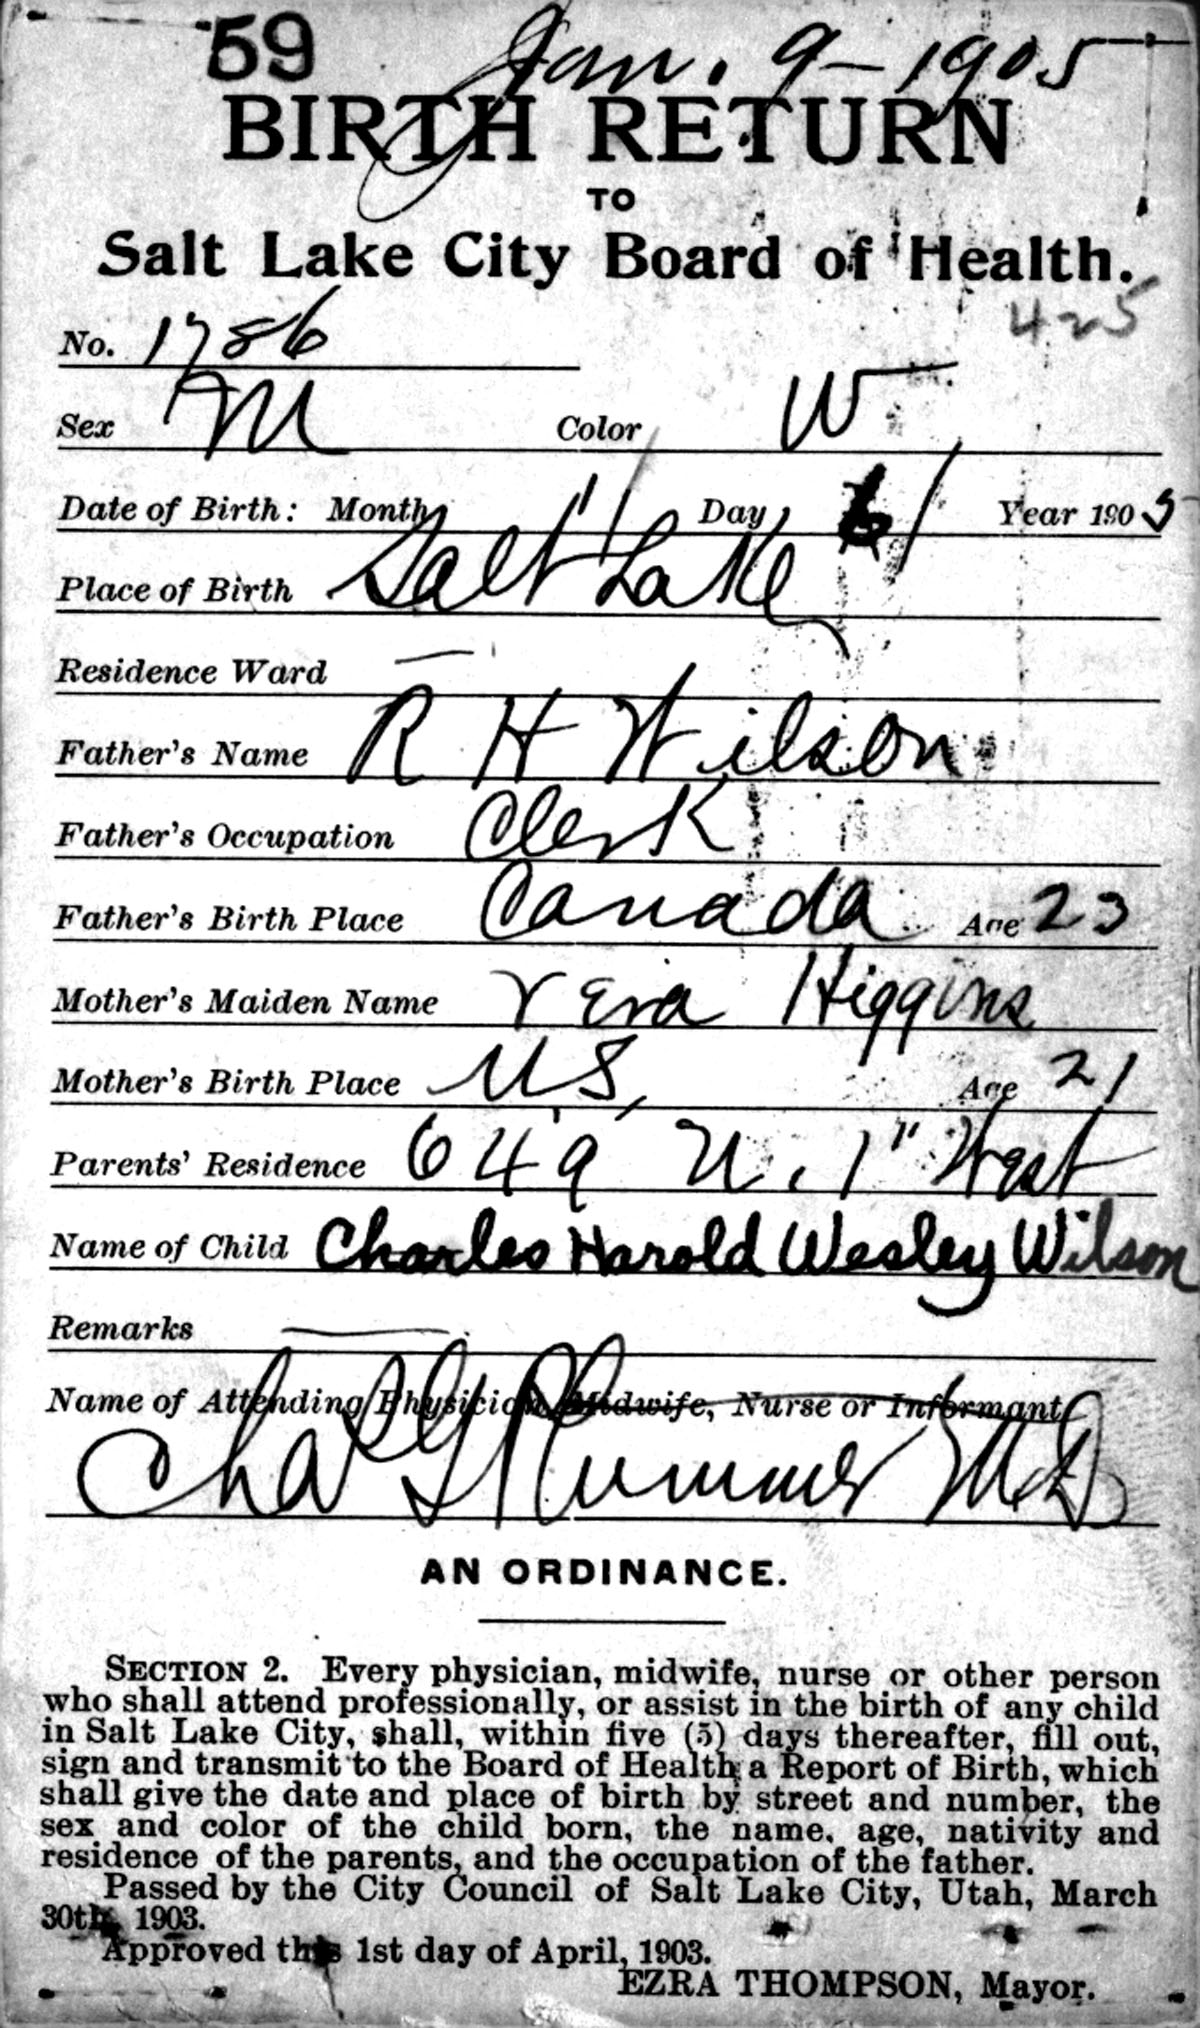 59 Jan. 9-1905
BIRTH RETURN
TO
Salt Lake City Board of Health.
425
No. 1786
Sex M Color W
Date of Birth: Month 1 Day 1 Year 1905
Place of Birth Salt Lake
Residence Ward —
Father's Name R H Wilson
Father's Occupation Clerk
Father's Birth Place Canada Age 23
Mother's Maiden Name Vera Higgins
Mother's Birth Place US, Age 21
Parents' Residence 649 N. 1" West
Name of Child Charles Harold Wesley Wilson
Remarks —
Name of Attending Physician, Midwife, Nurse or Informant
Chas G Plummer MD
AN ORDINANCE.
SECTION 2. Every physician, midwife, nurse or other person
who shall attend professionally, or assist in the birth of any child
in Salt Lake City, shall, within five (5) days thereafter, fill out,
sign and transmit to the Board of Health a Report of Birth, which
shall give the date and place of birth by street and number, the
sex and color of the child born, the name, age, nativity and
residence of the parents, and the occupation of the father.
Passed by the City Council of Salt Lake City, Utah, March
30th, 1903.
Approved this 1st day of April, 1903.
EZRA THOMPSON, Mayor.